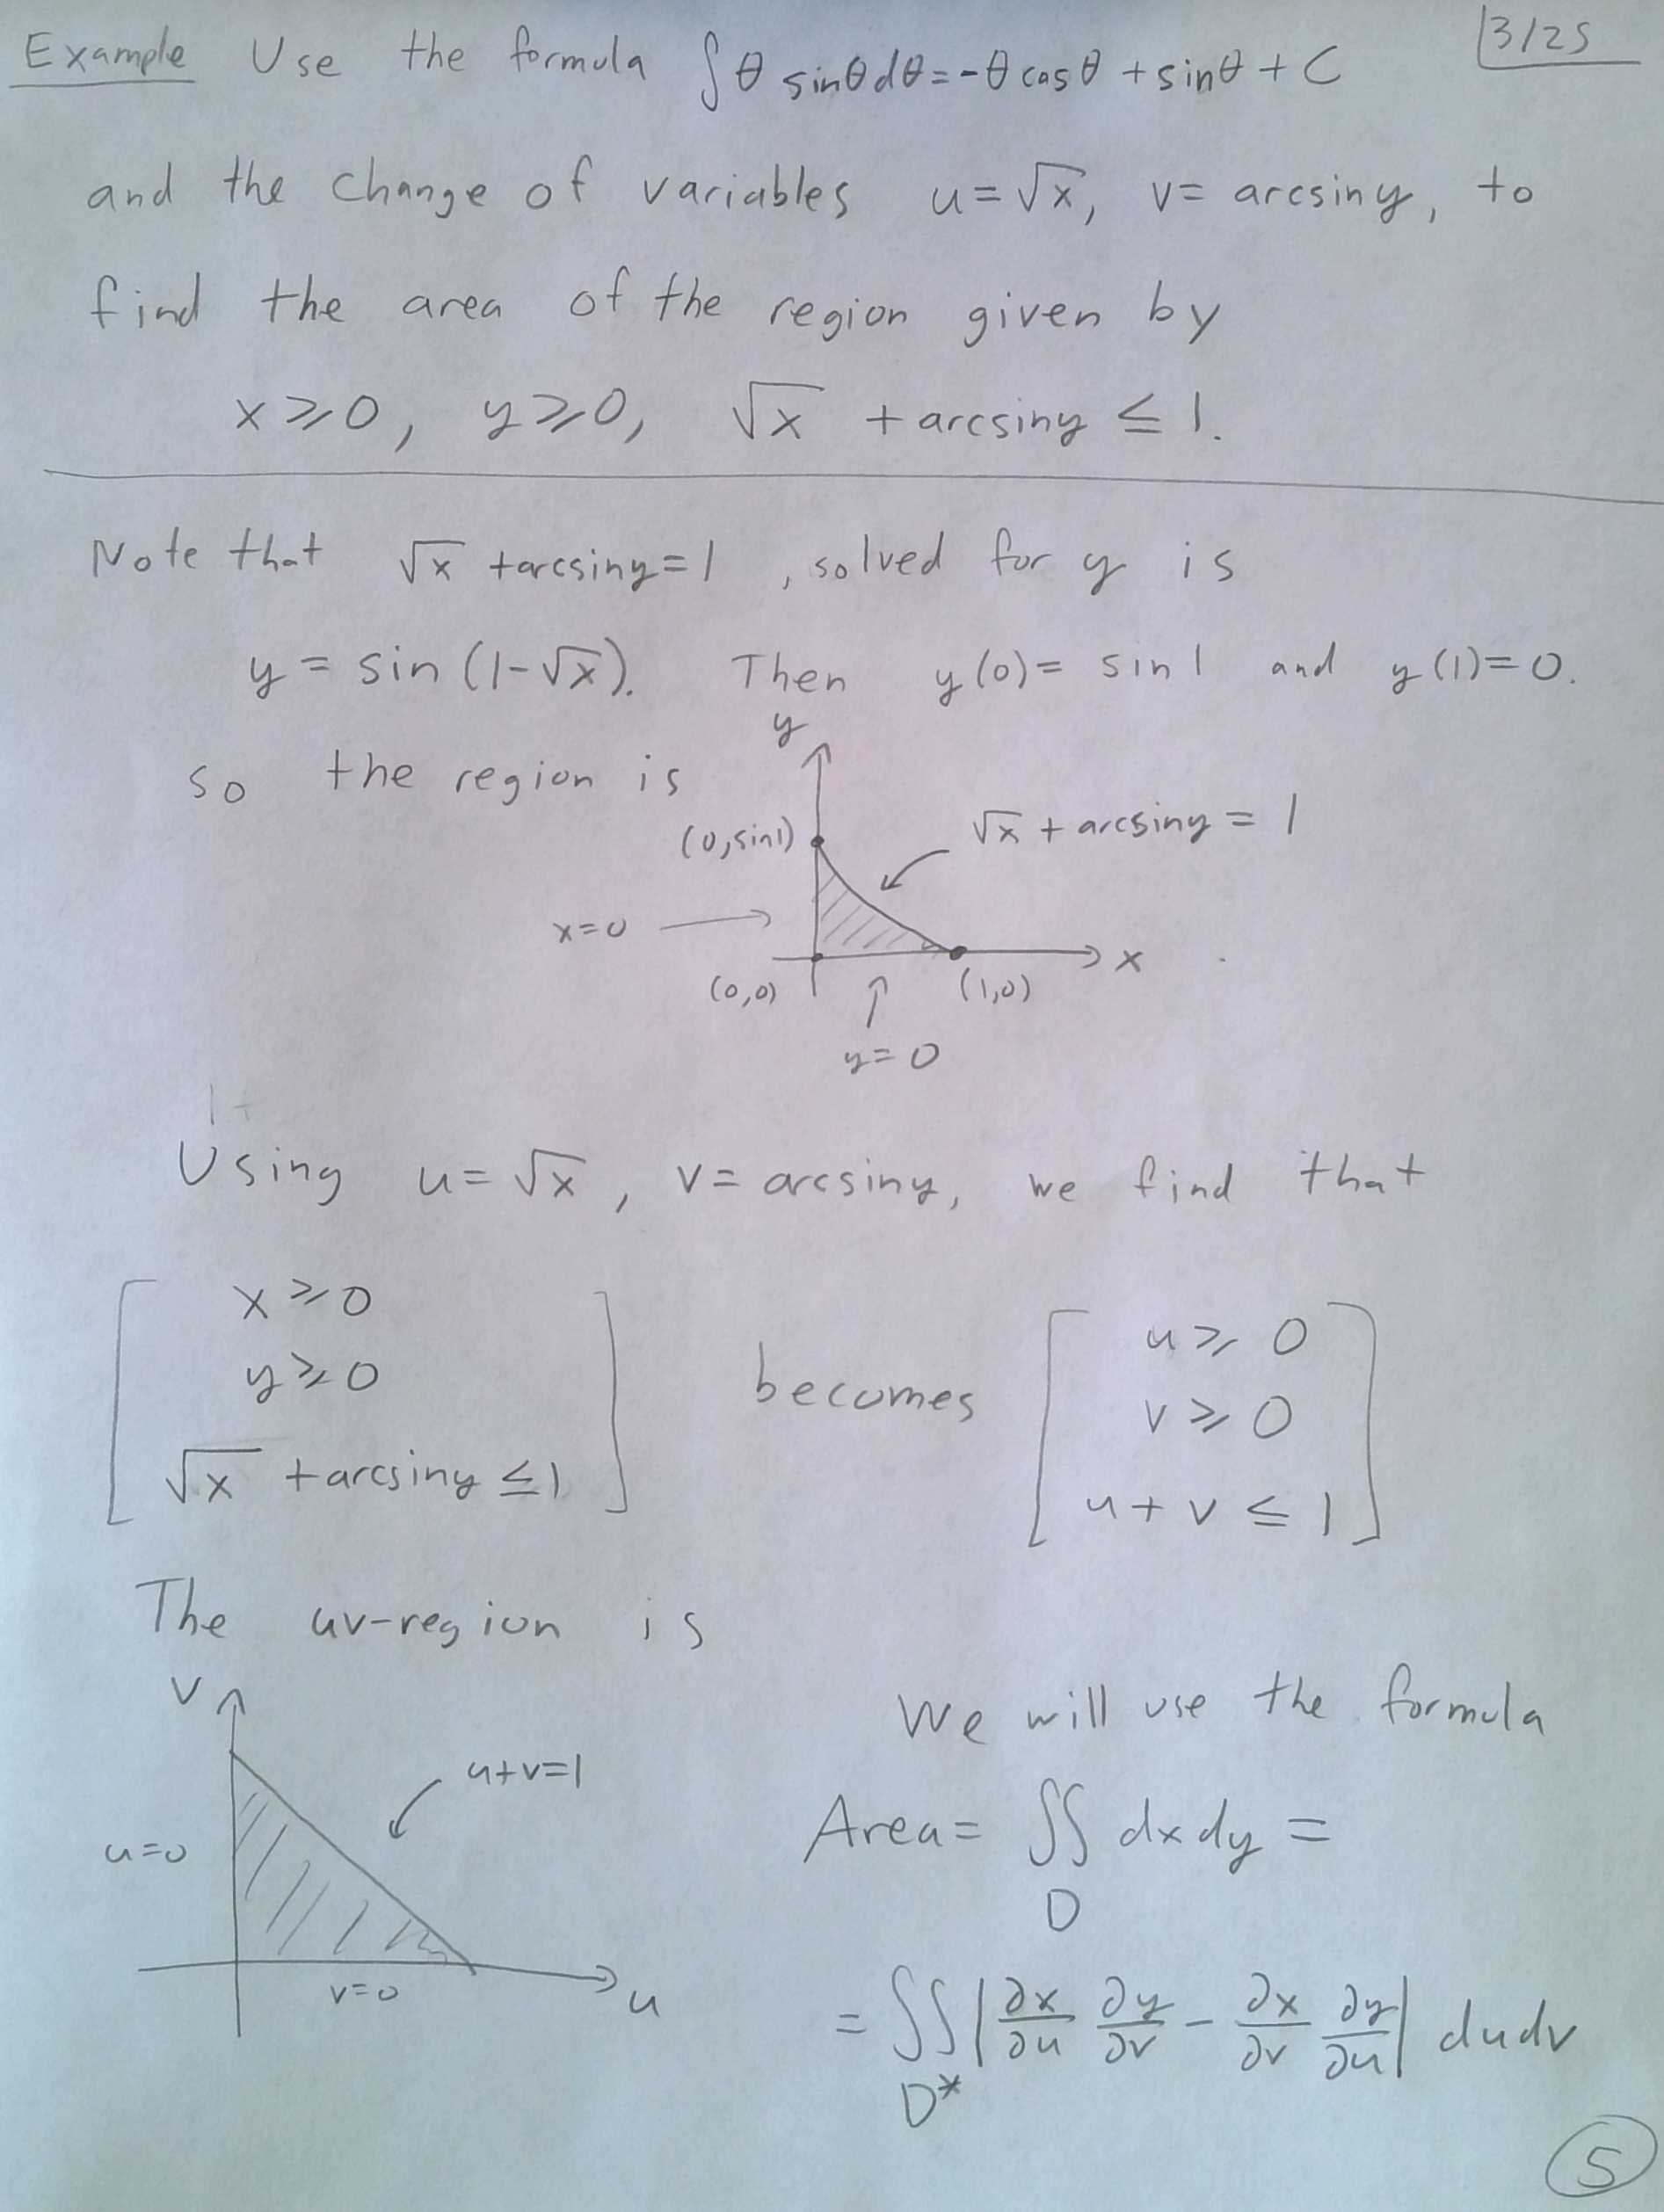 Example Use the formula ∫θ sinθdθ=-θcosθ+sinθ+C
3/25
and the change of variables u=√x, v=arcsiny, to
find the area of the region given by
x≥0, y≥0, √x +arcsiny ≤ 1.
Note that √x +arcsiny=1, solved for y is
y = sin(1-√x). Then y(0)= sin1 and y(1)=0.
so the region is
y
(0,sin1)
√x + arcsiny = 1
x=0
x
(0,0)
(1,0)
y=0
Using u=√x, v=arcsiny, we find that
x≥0
y≥0
√x +arcsiny ≤1
becomes
u≥0
v≥0
u+v≤1
The uv-region is
v
u+v=1
u=0
v=0
u
We will use the formula
Area= ∬ dxdy =
D
= ∬ |∂x/∂u ∂y/∂v - ∂x/∂v ∂y/∂u| dudv
D*
5